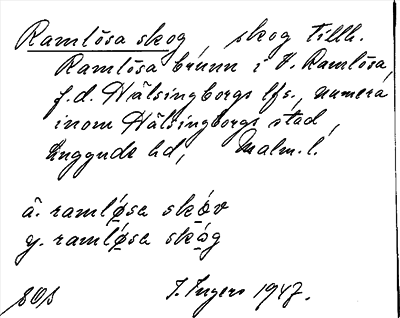 Ramlösa skog, skog tillh.
Ramlösa brunn i V. Ramlösa
f.d. Hälsingborgs lfs., numera
inom Hälsingborgs stad,
Luggude hd, Malm. l.
ä. ramlǿsa skóv
y. ramlǿsa skåg
I. Ingers 1947.